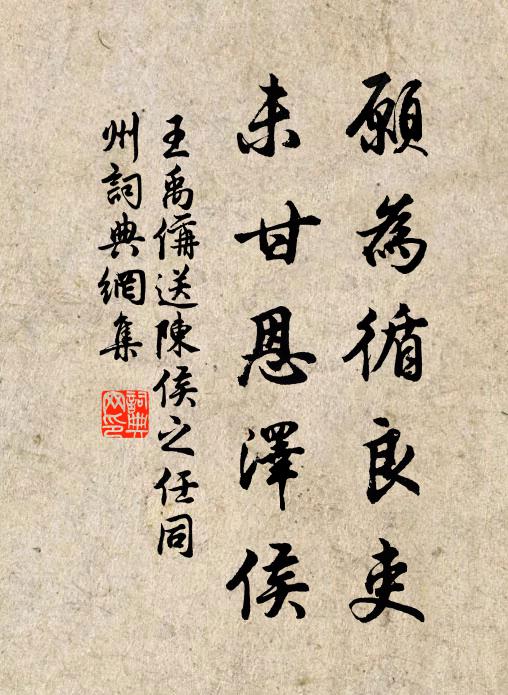 願為循良吏
未甘恩澤侯
王禹偁送陳侯之任同
州詞典網集
詞典
网印